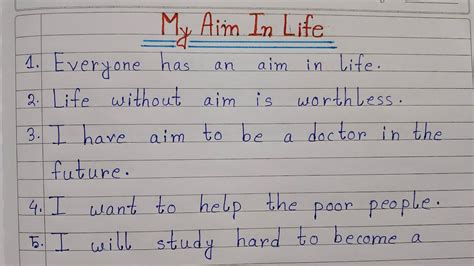 My Aim In Life
1. Everyone has an aim in life.
2. Life without aim is worthless.
3. I have aim to be a doctor in the
future.
4. I want to help the poor people.
5. I will study hard to become a